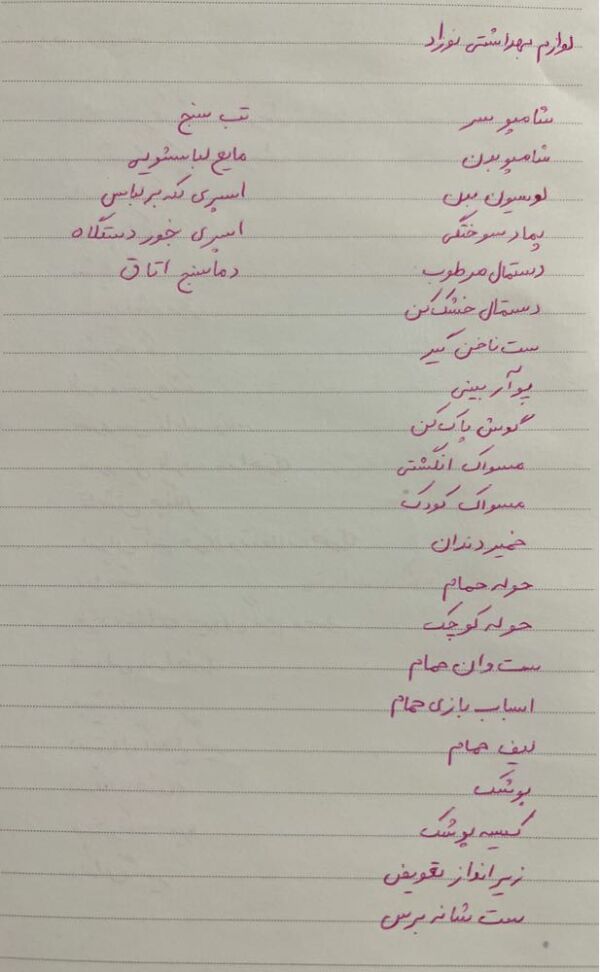 لوازم بهداشتی نوزاد
شامپو سر
شامپو بدن
لوسیون بدن
پماد سوختگی
دستمال مرطوب
دستمال خشک کن
ست ناخن گیر
پوآر بینی
گوش پاک کن
مسواک انگشتی
مسواک کودک
خمیر دندان
حوله حمام
حوله کوچک
ست وان حمام
اسباب بازی حمام
لیف حمام
پوشک
کیسه پوشک
زیر انداز تعویض
ست شانه برس
تب سنج
مایع لباسشویی
اسپری لکه بر لباس
اسپری خور دستگاه
دماسنج اتاق